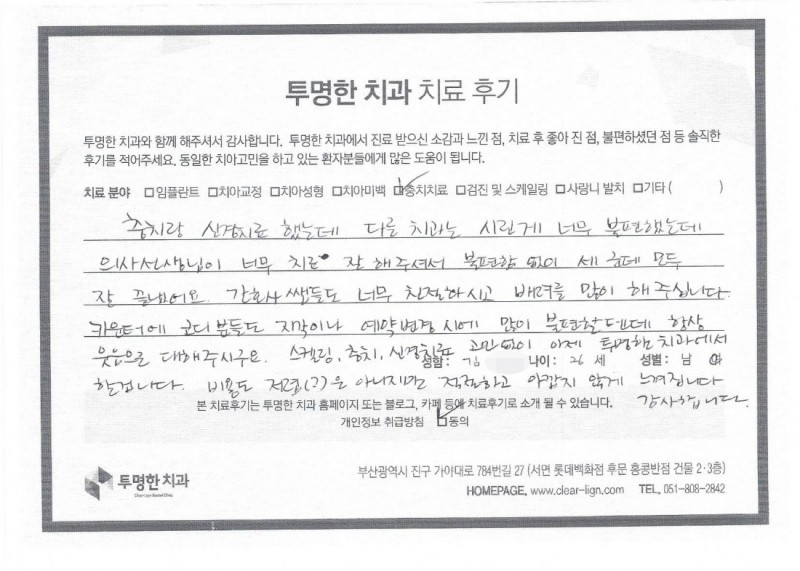 투명한 치과 치료 후기
투명한 치과와 함께 해주셔서 감사합니다. 투명한 치과에서 진료 받으신 소감과 느낀 점, 치료 후 좋아 진 점, 불편하셨던 점 등 솔직한
후기를 적어주세요. 동일한 치아고민을 하고 있는 환자분들에게 많은 도움이 됩니다.
치료 분야 □임플란트 □치아교정 □치아성형 □치아미백 ☑충치치료 □검진 및 스케일링 □사랑니 발치 □기타( )
충치랑 신경치료 했는데 다른 치과는 시린게 너무 불편했는데
의사선생님이 너무 치료 잘 해주셔서 불편함 없이 세 군데 모두
잘 끝냈어요. 간호사 쌤들도 너무 친절하시고 배려를 많이 해 주십니다.
카운터에 코디 분들도 지각이나 예약변경 시에 많이 불편할텐데 항상
웃음으로 대해주시구요. 스켈링, 충치, 신경치료 고민없이 이제 투명한 치과에서
성함: 김 나이: 26 세 성별: 남 여
할겁니다. 비용도 저렴(?)은 아니지만 적절하고 아깝지 않게 느껴집니다
감사합니다.
본 치료후기는 투명한 치과 홈페이지 또는 블로그, 카페 등에 치료후기로 소개 될 수 있습니다.
개인정보 취급방침 ☑동의
투명한 치과
부산광역시 진구 가야대로 784번길 27 (서면 롯데백화점 후문 홍콩반점 건물 2·3층)
HOMEPAGE. www.clear-lign.com TEL. 051-808-2842